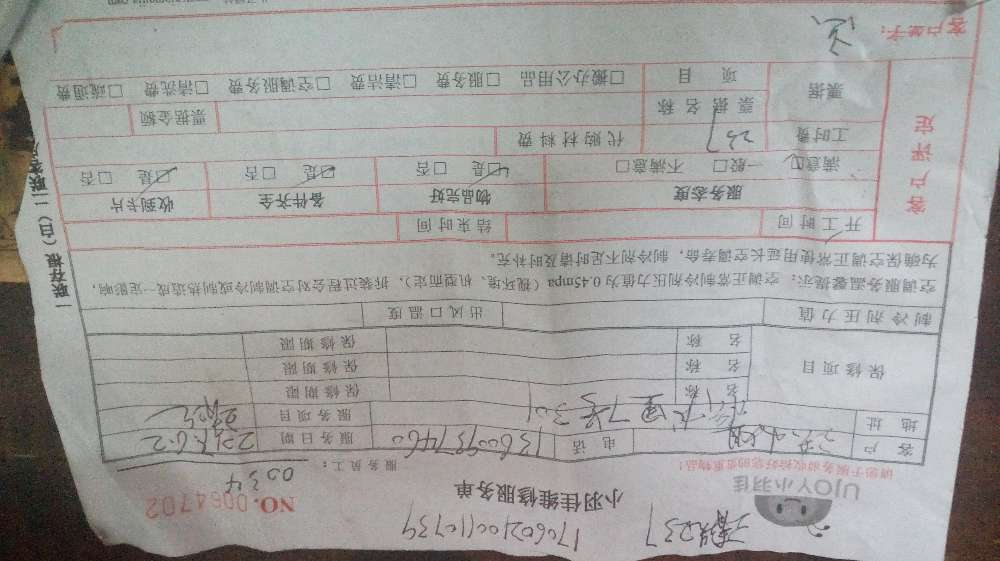 17060210010739
237
UJOY小羽佳
小羽佳维修服务单
NO. 0064702
请您于服务前收拾好您的贵重物品!
服务员工: 0034
客户 电话 13600937460 服务日期
地址 7号301 服务项目
保修项目 名称 保修期限
名称 保修期限
名称 保修期限
制冷剂压力值 出风口温度
空调服务温馨提示: 空调正常制冷剂压力值为0.45mpa(视环境、机型而定), 拆装过程会对空调制冷或制热造成一定影响,
为确保空调正常使用延长空调寿命, 制冷剂不足时请及时补充。
客户评定
开工时间 结束时间
服务态度 物品完好 备件齐全 收到卡片
满意☑ 一般□ 不满意□ ☑是 □否 ☑是 □否 ☑是 □否
工时费 237 代购材料费
票据 票据名称 票据金额
项目 □搬办公用品 □服务费 □清洁费 □空调服务费 □清洗费 □疏通费
客户签字:
一联存根(白)